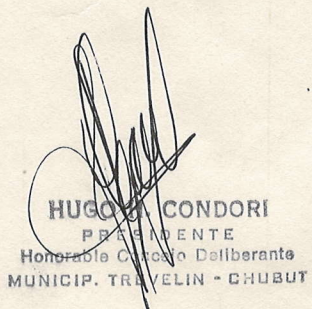 HUGO CONDORI
PRESIDENTE
Honorable Concejo Deliberante
MUNICIP. TREVELIN - CHUBUT